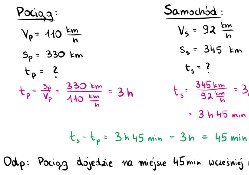 Pociąg:
V_p = 110 km/h
S_p = 330 km
t_p = ?
t_p = S_p/V_p = 330 km / 110 km/h = 3 h
Samochód:
V_s = 92 km/h
S_s = 345 km
t_s = ?
t_s = 345 km / 92 km/h = 3,
= 3 h 45 min
t_s - t_p = 3 h 45 min - 3 h = 45 min
Odp: Pociąg dojedzie na miejsce 45 min wcześniej